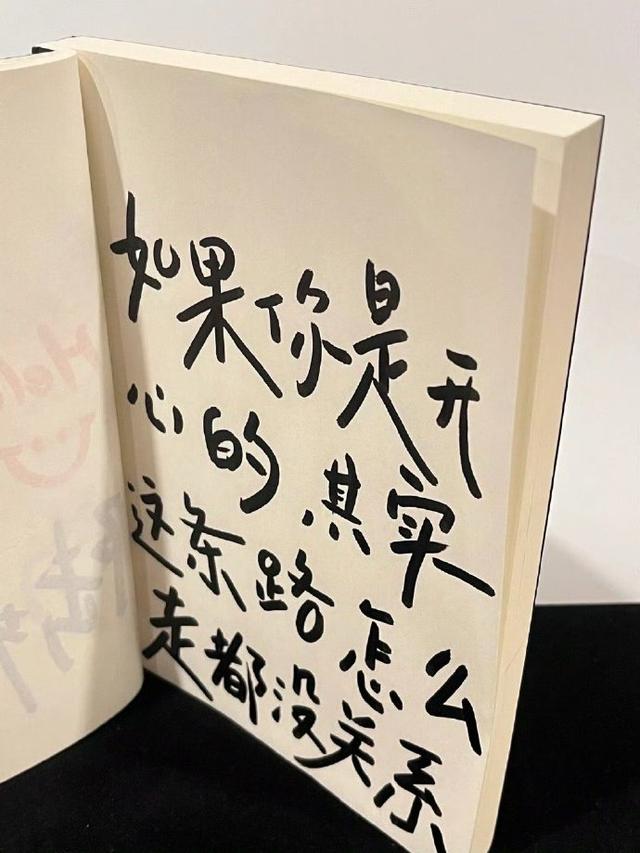 如果你是开
心的 其实
这条路怎么
走都没关系